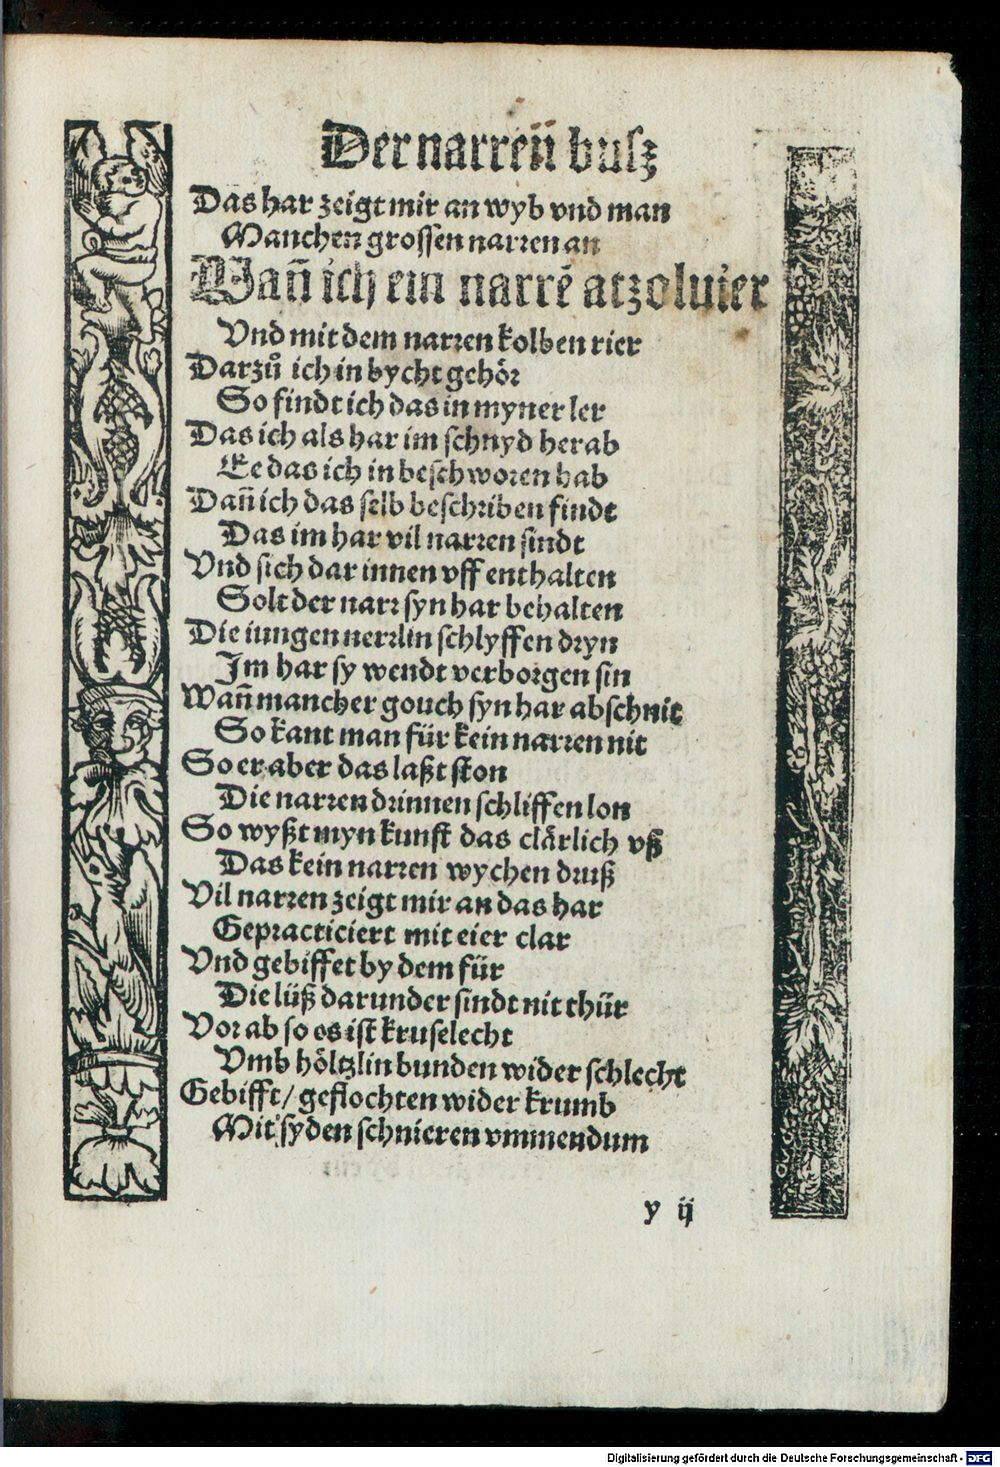 Der narreñ busz
Das har zeigt mir an wyb vnd man
Manchen grossen narren an
Wañ ich ein narrẽ atzoluier
Vnd mit dem narren kolben rier
Darzů ich in bycht gehör
So findt ich das in myner ler
Das ich als har im schnyd herab
Ee das ich in beschworen hab
Dañ ich das selb beschriben findt
Das im har vil narren sindt
Vnd sich dar innen vff enthalten
Solt der narr syn har behalten
Die iungen nerrlin schlyffen dryn
Im har sy wendt verborgen sin
Wañ mancher gouch syn har abschnit
So kant man für kein narren nit
So er aber das laßt ston
Die narren drinnen schliffen lon
So wyßt myn kunst das clärlich vß
Das kein narren wychen druß
Vil narren zeigt mir an das har
Gepracticiert mit eier clar
Vnd gebiffet by dem für
Die lüß darunder sindt nit thür
Vor ab so es ist kruselecht
Vmb höltzlin bunden wider schlecht
Gebifft/ geflochten wider krumb
Mit syden schnieren vmmendum
y ij
Digitalisierung gefördert durch die Deutsche Forschungsgemeinschaft - DFG